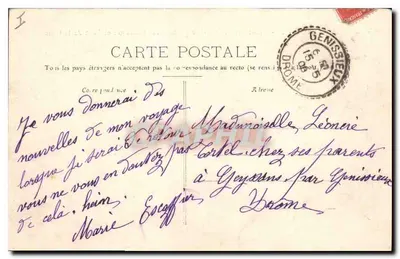 I
CARTE POSTALE
Tous les pays étrangers n'acceptent pas la correspondance au recto (se rens
Correspondance
Adresse
GENISSIEUX
DROME
Je vous donnerai des
nouvelles de mon voyage
lorsque je serai de retour
vous ne vous en doutez pas
de celà. hein
Marie Escoffier
Mademoiselle Léonie
Tortel chez ses parents
à Geyssans par Génissieux
Drôme